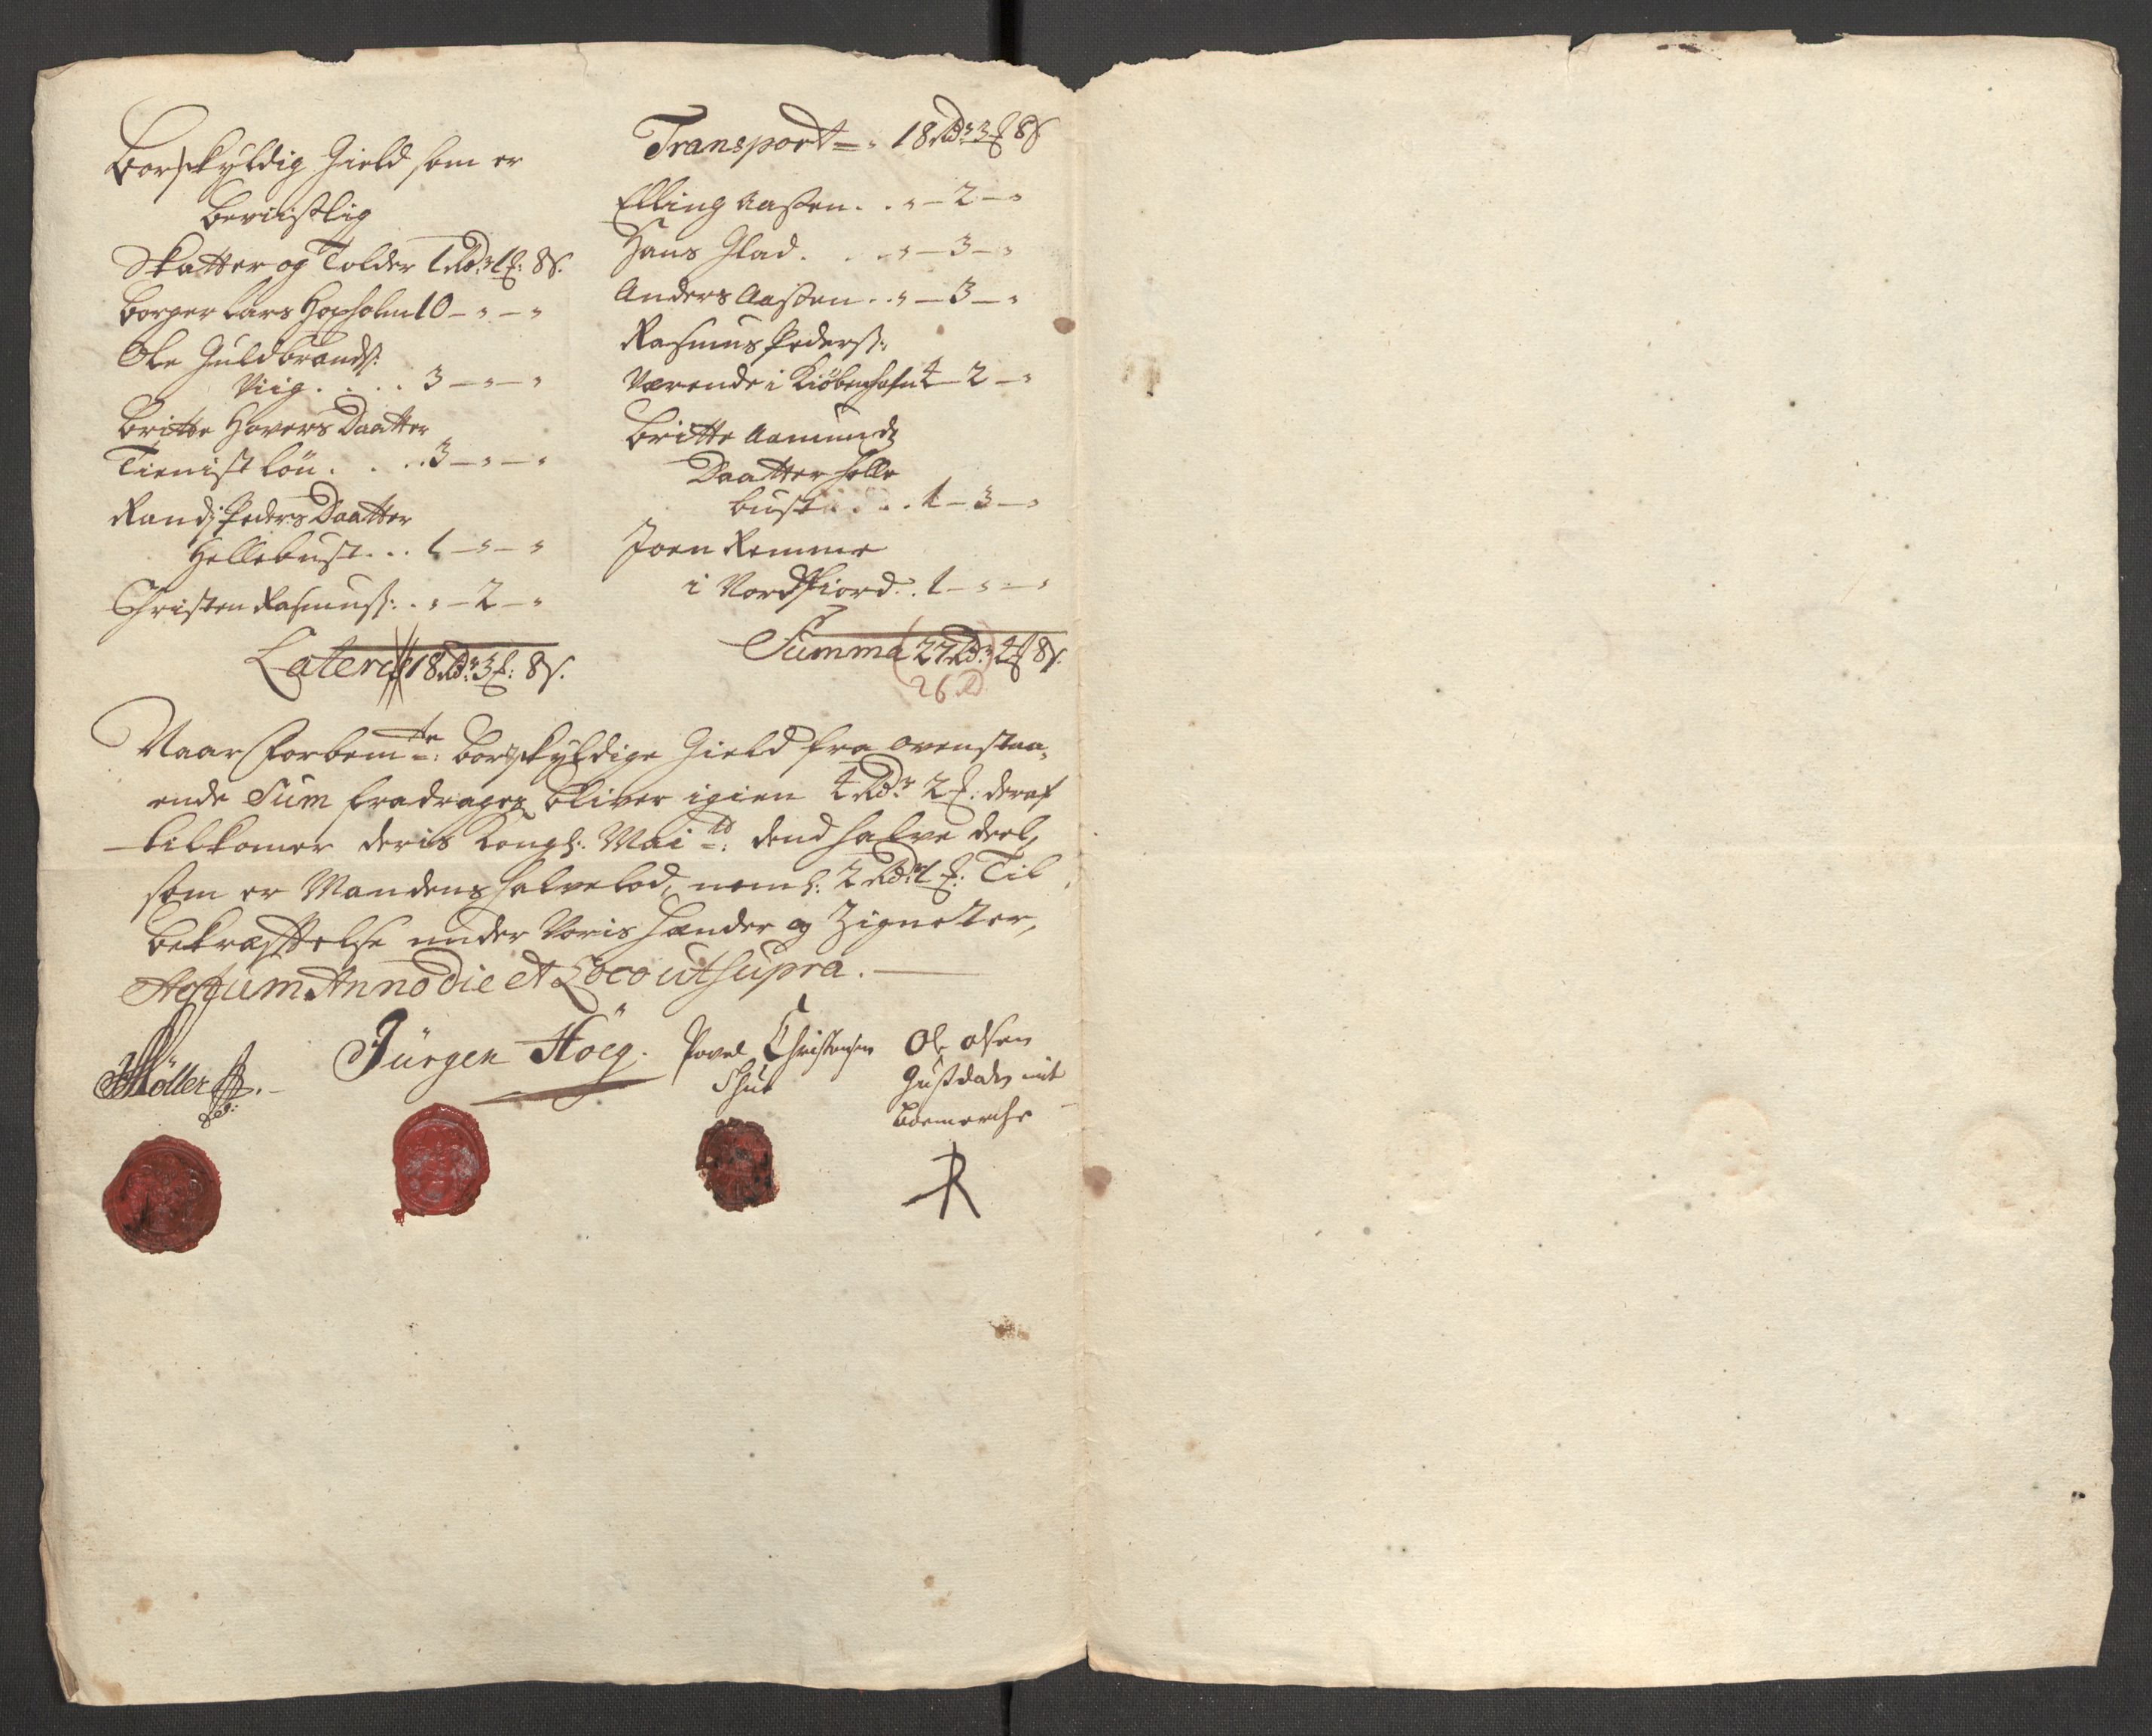 Bortskyldig Gield som er
beviistlig
Skatter og Tolder 1 Rdr 1 ₰: 8 s.
Borger Lars Hopholm 10 - " - "
Ole Guldbrands:
Viig . . . . 3 - " - "
Britte Hovers Daatter
Tienist løn . . . . 3 - " - "
Randj Peders Daatter
Hellebust . . . 1 - " - "
Christen Rasmuss: . " - 2 - "
Latere 18 Rdr 3 ₰: 8 s.
Transport = " 18 Rdr 3 ₰ 8 s
Elling Aasen . . " - 2 - "
Hans Glad . . . " - 3 - "
Anders Aasen . . " - 3 - "
Rasmus Peders:
Værende i Kiøbenhafn 4 - 2 - "
Britte Aamunds
Daatter Helle
bust . . . 1 - 3 - "
Joen Remme
i Nordfiord . . 1 - " - "
Summa (27 Rdr) 2 ₰ 8 s.
26 Rd
Naar forbemte: bortskyldige Gield fra ovenstaa-
ende Sum fradrages, bliver igien 4 Rdr 2 ₰: deraf
tilkomer deris Kongl: Maitt: dend halve deel,
som er Mandens halve lod, neml: 2 Rdr 1 ₰: Til
bekræfftelse under Voris hænder og Zigneter,
Actum Anno die et Loco ut supra.
Möller
Jürgen Höeg.
Povel Christensen
Ole Olsen
Gustdals mit
boemerche
R